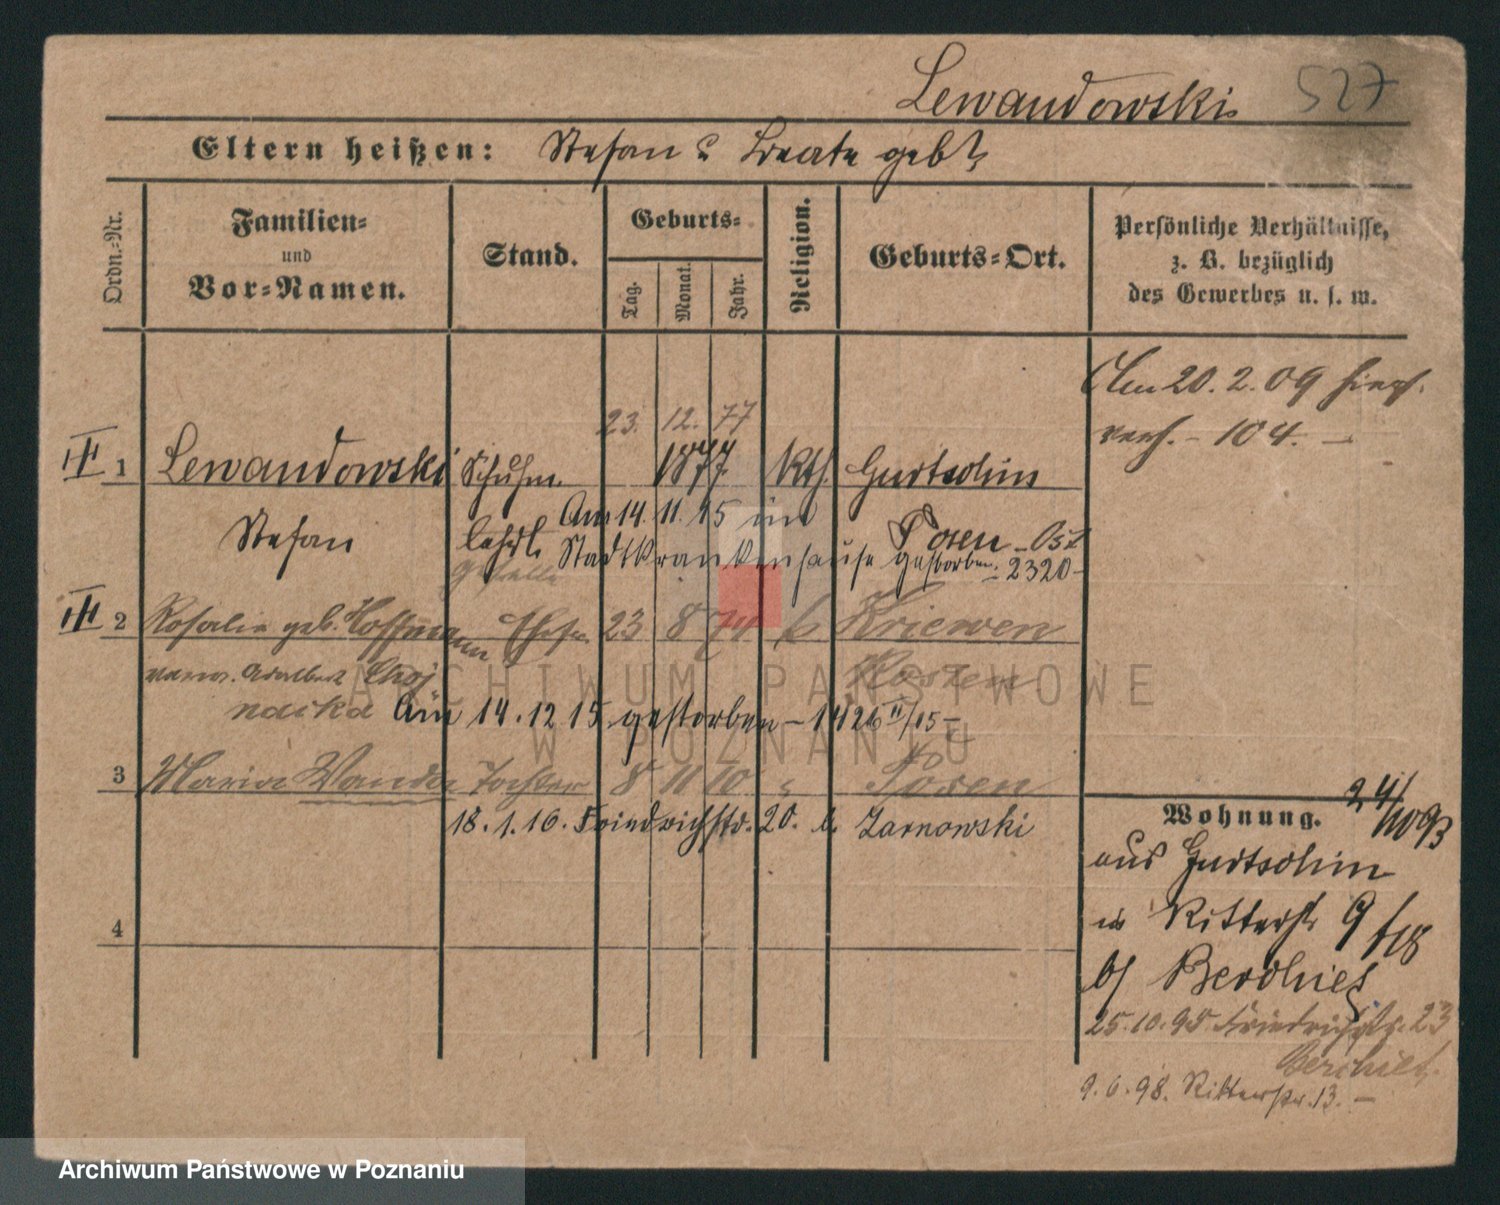 Lewandowski 527
Eltern heißen: Stefan u Beate geb.
Ordn.-Nr.
Familien- und Vor-Namen.
Stand.
Geburts-
Tag. Monat. Jahr.
Religion.
Geburts-Ort.
Persönliche Verhältnisse,
z. B. bezüglich
des Gewerbes u. s. w.
Am 20.2.09 hiers.
verh. - 104. -
23. 12. 77
III 1 Lewandowski Schuhm. 1877 Kth. Gurtschin
Stefan Lehrl. Posen - Ost
Geselle
Am 14. 11. 15 im
Stadtkrankenhause gestorben. - 2320 -
III 2 Rosalie geb. Hoffmann Ehefr. 23 8 Kriewen
verw. Adalbert Chojnacka Kosten
Am 14. 12. 15 gestorben - 1426 II/15 -
3 Maria Wanda Tochter 8 11 10 Posen
18. 1. 16. Friedrichstr. 20. b. Zarnowski
4
Wohnung.
24/10 93
aus Gurtschin
Ritterstr 9
b/ Berchies
25.10.95 Friedrichstr. 23
Berchies.
9. 6. 98. Ritterstr. 13. -
ARCHIWUM PAŃSTWOWE
W POZNANIU
Archiwum Państwowe w Poznaniu